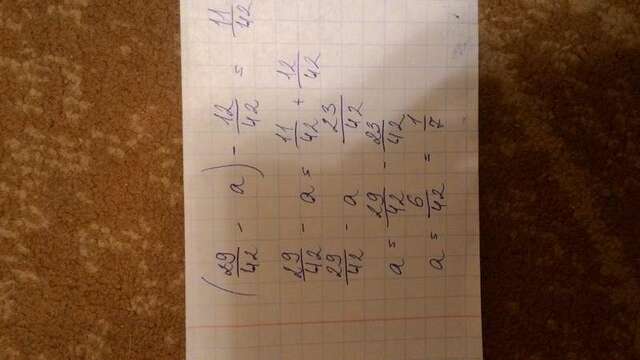 (29/42 - a) - 12/42 = 11/42
29/42 - a = 11/42 + 12/42
29/42 - a 23/42
a = 29/42 - 23/42
a = 6/42 = 1/7